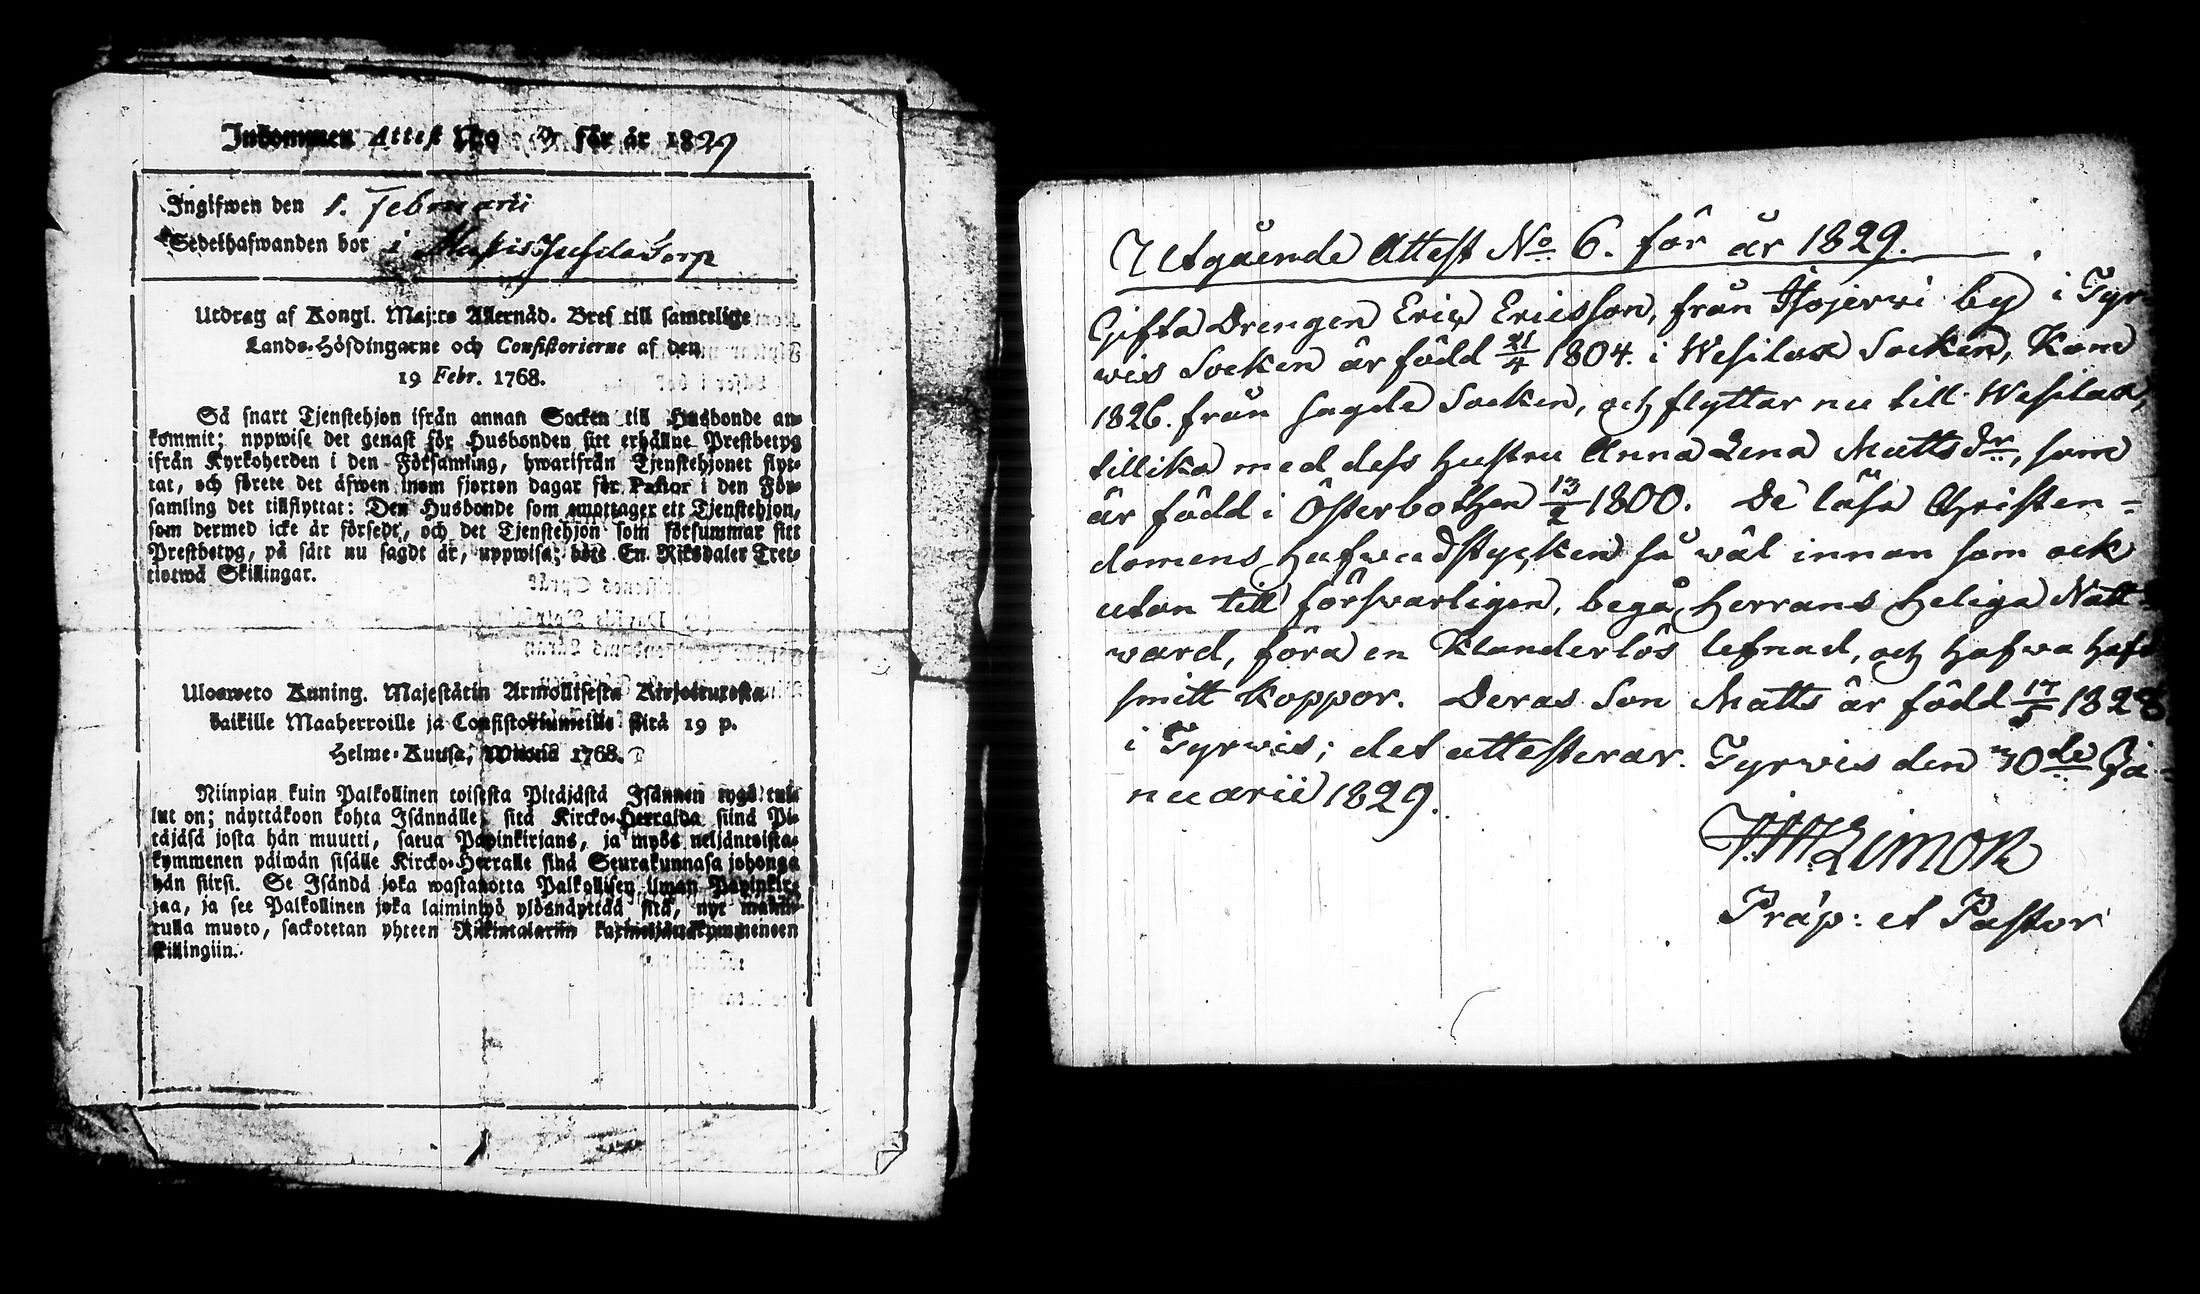 Inkommen Attest No för år 1829
Ingifwen den 1. Februarii
Sedelhafwanden bor i Torp
Utdrag af Kongl. Maj:ts Allernåd. Bref till samtelige
Lands-Höfdingarne och Consistorierne af den
19 Febr. 1768.
Så snart Tjenstehjon ifrån annan Socken till Husbonde an-
kommit; uppwise det genast för Husbonden sitt erhållne Prestbetyg
ifrån Kyrkoherden i den Församling, hwarifrån Tjenstehjonet flyt-
tat, och förete det äfwen inom fjorton dagar för Pastor i den För-
samling det tillflyttat: Den Husbonde som emottager ett Tjenstehjon,
som dermed icke är försedt, och det Tjenstehjon som försummar sitt
Prestbetyg, på sätt nu sagdt är, uppwisa; böte En Riksdaler Tret-
tiotwå Skillingar.
Ulosweto Kuning. Majestätin Armollisesta Kirjoituxesta
kaikille Maaherroille ja Consistoriumeille siitä 19 p.
Helme-Kuusa, Wuona 1768.
Niinpian kuin Palkollinen toisesta Pitäjästä Isännen tygö tul-
lut on; näyttäköön kohta Isännälle, sitä Kircko-Herralda siinä Pi-
täjäsä josta hän muutti, saatua Papinkirjans, ja myös neljäntoista-
kymmenen päiwän sisälle Kircko-Herralle siinä Seurakunnasa johonga
hän siirsi. Se Isändä joka wastanotta Palkollisen ilman Papinkir-
jaa, ja see Palkollinen joka laiminlyö ylösnäyttää sitä, nyt mainit-
tulla muoto, sackotetan yhteen Riikintalariin kaxineljättäkymmeneen
skillingiin.
Utgående Attest No 6. för år 1829.
Gifta Drengen Eric Ericsson, från Isojerwi by i Tyr-
wis Socken är född 21/4 1804. i Wesilax Socken, Kom
1826. från sagde Socken, och flyttar nu till Wesilax,
tillika med dess Hustru Anna Lena Mattsdr, som
är född i Österbothen 13/2 1800. De läsa Christen-
domens Hufwudstycken så wäl innan som ock
utan till försvarligen, begå Herrans Heliga Natt-
ward, föra en Klanderlös lefnad, och hafwa haft
smitt koppor. Deras Son Matts är född 17/5 1828
i Tyrwis; det attesterar. Tyrwis den 30de Ja-
nuarii 1829.
Limon
Præp: et Pastor